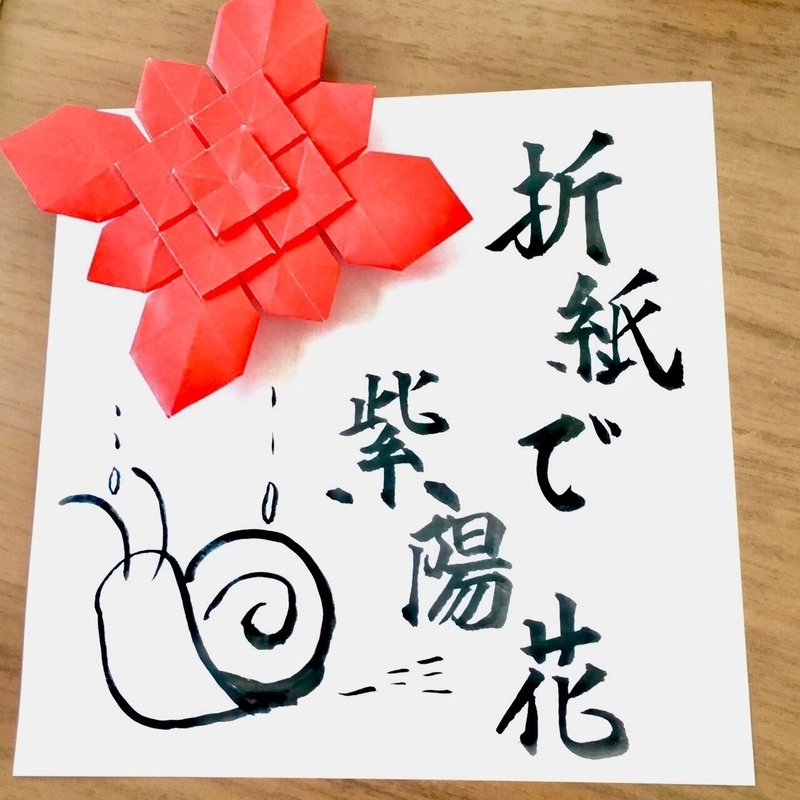 折紙で
紫陽花